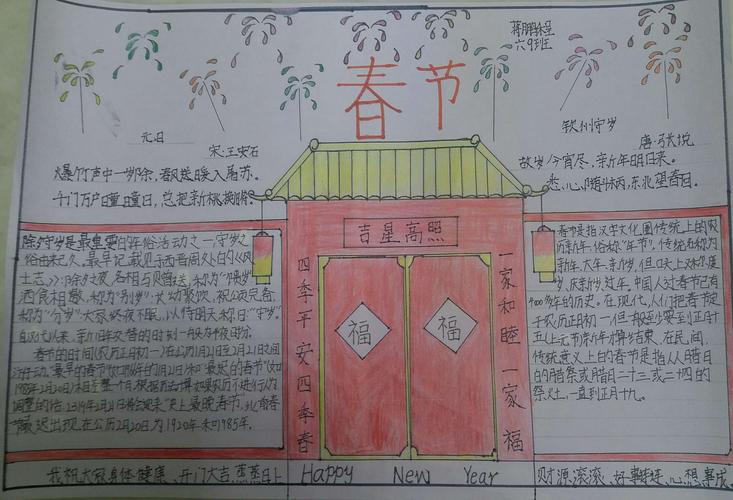 蒋鹏程
六9班
春节
元日
宋·王安石
爆竹声中一岁除,春风送暖入屠苏。
千门万户曈曈日,总把新桃换旧符。
钦州守岁
唐·张说
故岁今宵尽,新年明日来。
愁心随斗柄,东北望春回。
吉星高照
四季平安四季春
一家和睦一家福
福
福
除夕守岁是最重要的年俗活动之一,守岁之
俗由来已久,最早记载见于西晋周处的《风
土志》:除夕之夜,各相与赠送,称为“馈岁”;
酒食相邀,称为“别岁”;长幼聚饮,祝颂完备,
称为“分岁”;大家终夜不眠,以待明天称曰“守岁”。
自汉代以来,新旧年交替的时刻一般为半夜时分。
春节的时间(农历正月初一)在公历1月21日至2月21日之间
游动。“最早的春节”(如 年的1月21日)和“最迟的春节”(如
1985年2月20日)相差整一个月,根据历法博 果农历不进行人为
调整的话,2319年2月21日将会迎来“史上最晚春节”,此前春
节最迟出现在公历2月20日,为1920年和1985年。
春节是指汉字文化圈传统上的农
历新年,俗称“年节”,传统名称为
新年、大年、新岁,但口头上又称度
岁、庆新岁、过年,中国人过春节已有
4000多年的历史。在现代,人们把春节定
于农历正月初一,但一般至少要到正月十
五(上元节)新年才算结束,在民间,
传统意义上的春节是指从腊月
的腊祭或腊月二十三或二十四的
祭灶,一直到正月十九。
我祝大家身体健康、开门大吉、蒸蒸日上
Happy New Year
财源滚滚、好事连连、心想事成